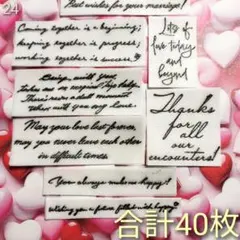 24
Best wishes for your marriage!
Coming together is a beginning;
keeping together is progress;
working together is success.
Lots of
love today
and
beyond
Being with you
takes me on respect
There's not a dull moment
when with you my love.
May your love last forever,
may you never leave each other
in difficult times.
Thanks
for all
our
encounters!
You always make me happy!
Wishing you a future filled with happy
合計40枚